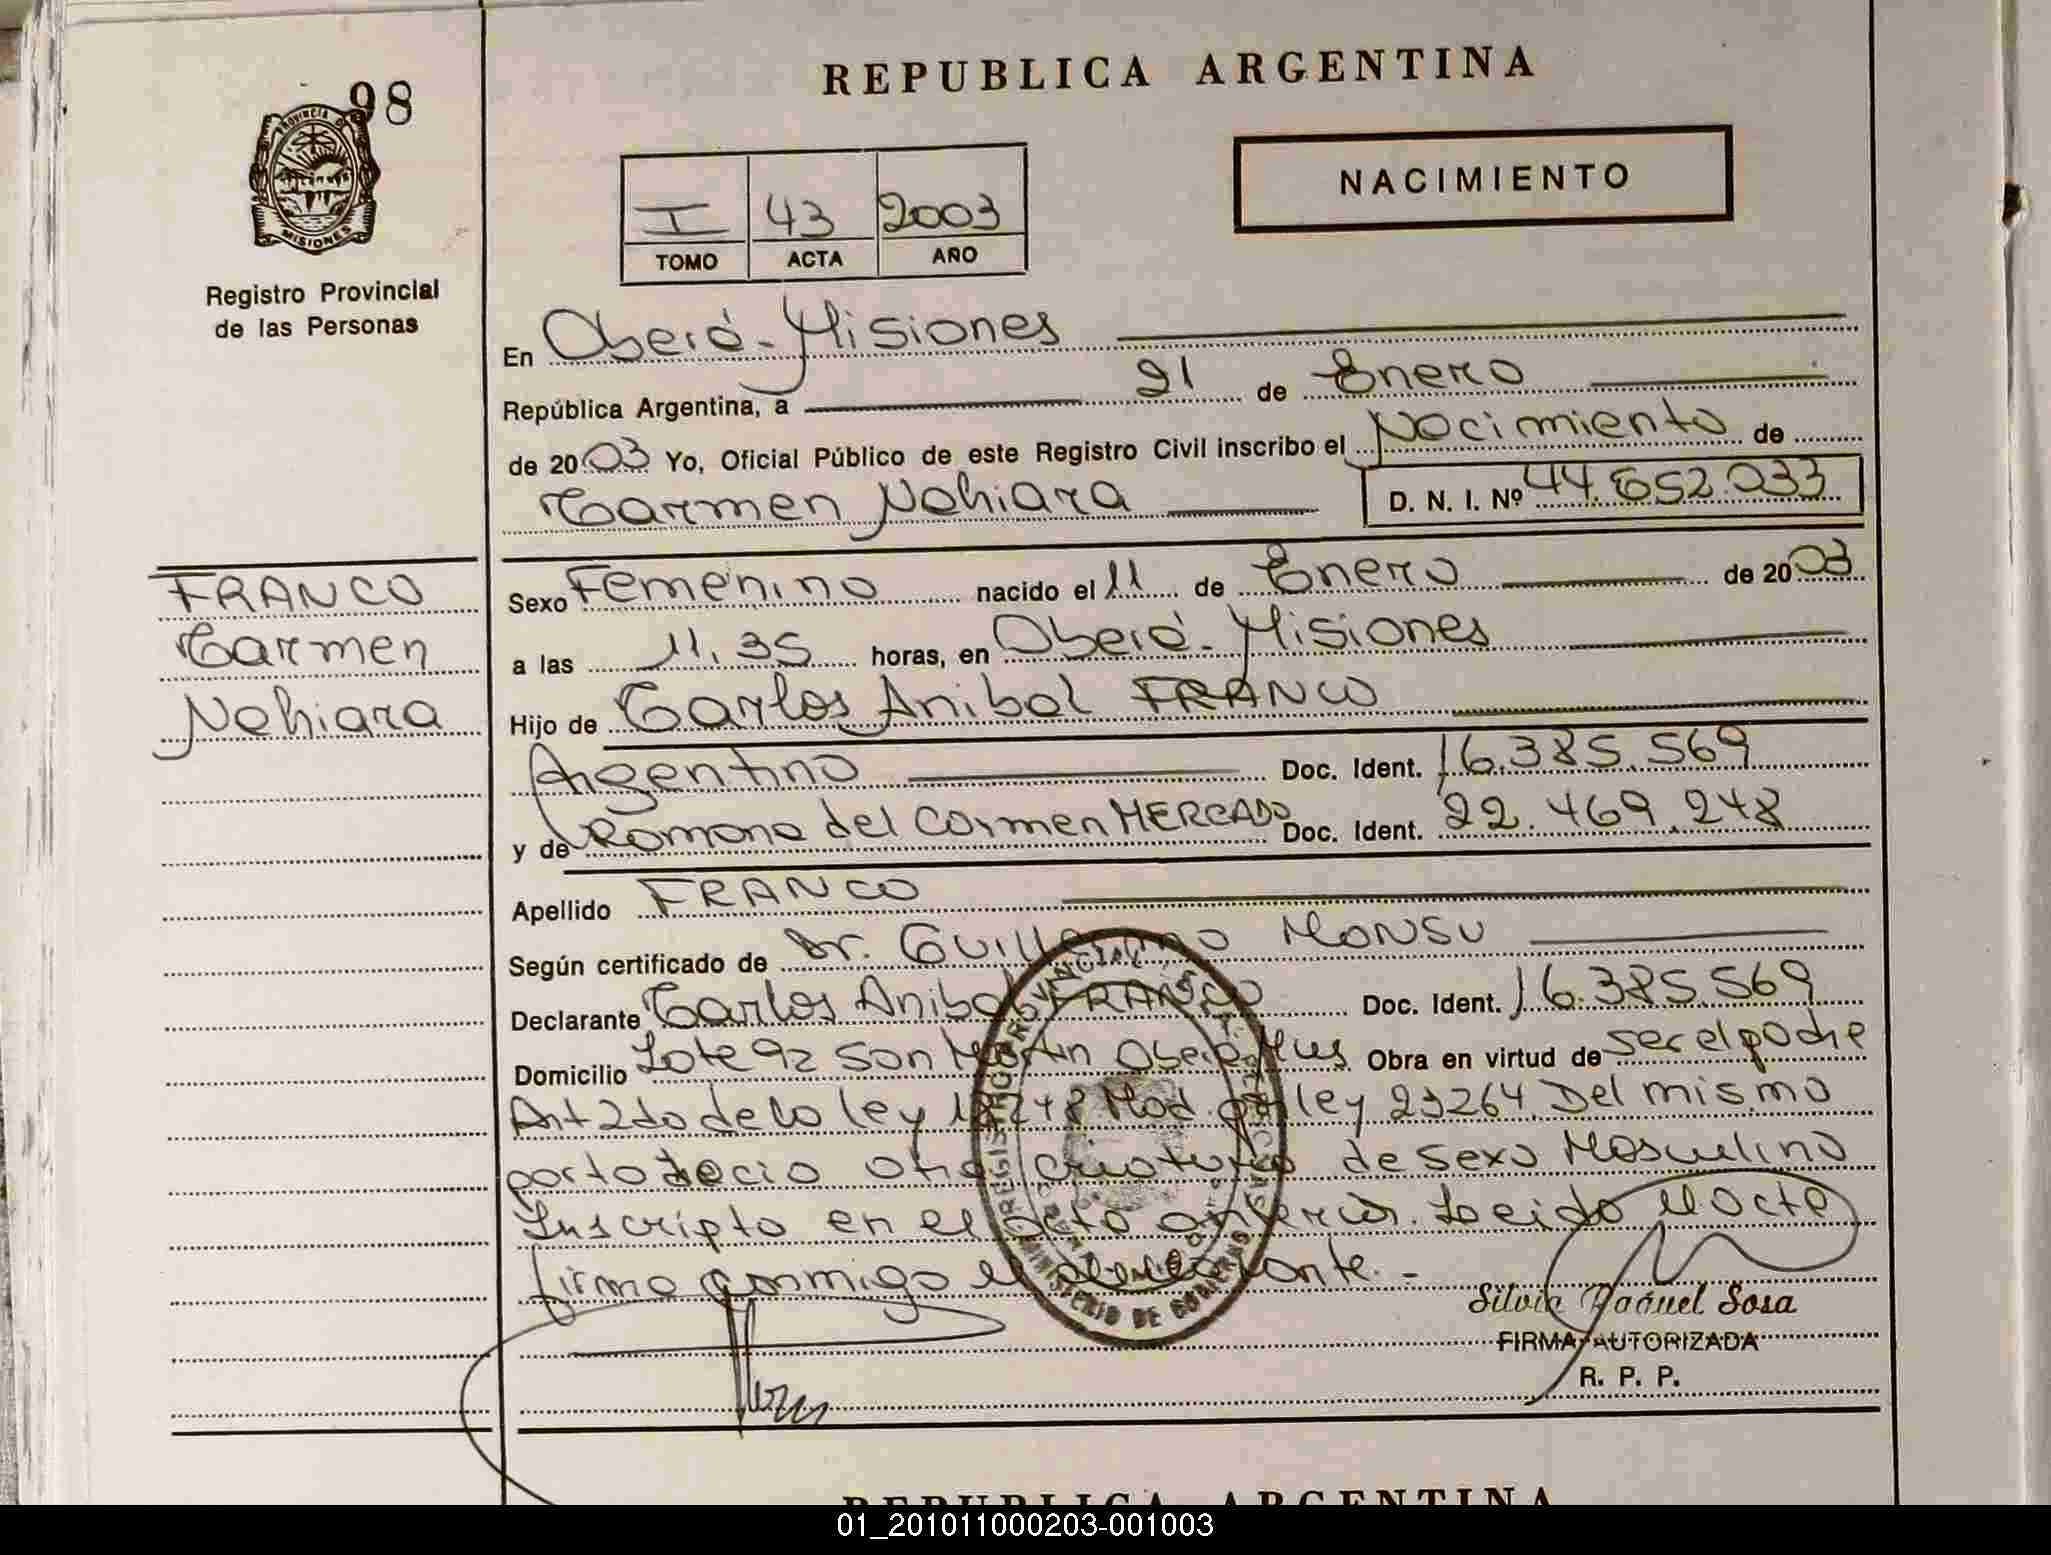 98
REPUBLICA ARGENTINA
NACIMIENTO
PROVINCIA DE
MISIONES
Registro Provincial
de las Personas
I 43 2003
TOMO ACTA AÑO
En Oberá - Misiones
República Argentina, a 21 de Enero
de 2003 Yo, Oficial Público de este Registro Civil inscribo el Nacimiento de
Carmen Nahiara D. N. I. Nº 44.652.033
FRANCO
Carmen
Nahiara
Sexo Femenino nacido el 11 de Enero de 2003
a las 11,35 horas, en Oberá - Misiones
Hijo de Carlos Anibal FRANCO
Argentino Doc. Ident. 16.385.569
y de Ramona del Carmen MERCADO Doc. Ident. 22.469.248
Apellido FRANCO
Según certificado de Dr. Guillermo MONSU
Declarante Carlos Anibal FRANCO Doc. Ident. 16.385.569
Domicilio Lote 92 San Martin Oberá Mnes Obra en virtud de ser el padre
Art 2do de la ley 18248 Mod. por ley 23264. Del mismo
parto nacio otra criatura de sexo Masculino
Inscripto en el acta anterior. Leido el acta
firma conmigo el declarante. -
MINISTERIO DE GOBIERNO
Silvia Raquel Sosa
FIRMA AUTORIZADA
R. P. P.
REPUBLICA ARGENTINA
01_201011000203-001003